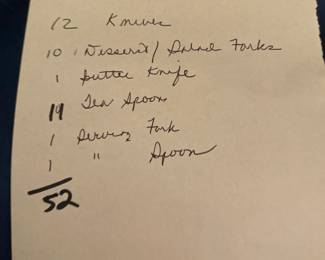 12 Knives
10 Desserts/Salad Forks
1 Butter Knife
14 Tea Spoons
1 Serving Fork
1 " Spoon
52